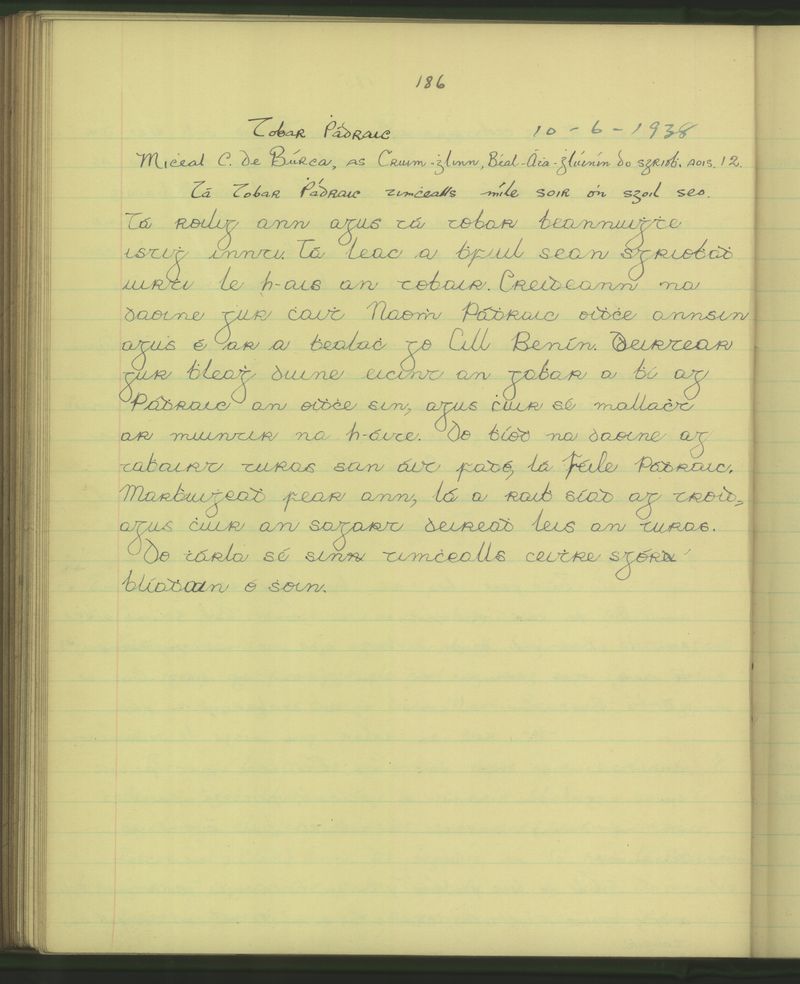 186
Tobar Ṗádraic 10-6-1938
Micéal C. de Búrca, as Cruim-ġlinn, Béal-Áṫa-ġlúinín do sgríoḃ. aois. 12.
Tá Tobar Ṗádraic timċealls míle soir ón sgoil seo.
Tá roilig ann agus tá tobar beannuiġte
istiġ innti. Tá leac a ḃfuil sean sgríobad
uirti le h-ais an tobair. Creideann na
daoine gur ċaiṫ Naoṁ Pádraic oiḋċe annsin
agus é ar a ḃealaċ go Cill Benín. Deirtear
gur ḃleaġ duine éicint an gobar a bí ag
Pádraic an oiḋċe sin, agus ċuir sé mallaċt
ar muintir na h-áite. Do ḃíoḋ na daoine ag
tabairt turas san áit fadó, lá Féile Pádraic.
Marbuiġeaḋ fear ann, lá a raiḃ siad ag troid,
agus ċuir an sagart deireaḋ leis an turas.
Do ṫárla sé sinn timċealls ceitre sgórd
blíaḋain ó ṡoin.